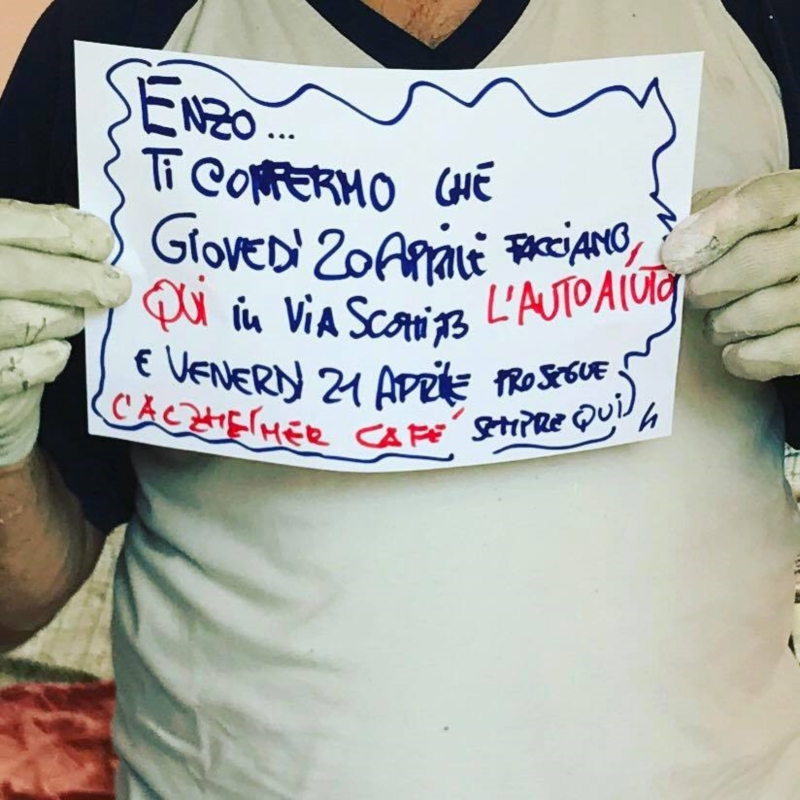 ENZO...
Ti CONFERMO CHE
GIOVEDÌ 20 APRILE FACCIAMO
QUI in VIA SCOTTI,13 L'AUTO AIUTO
E VENERDÌ 21 APRILE PROSEGUE
L'ALZHEIMER CAFÉ SEMPRE QUI